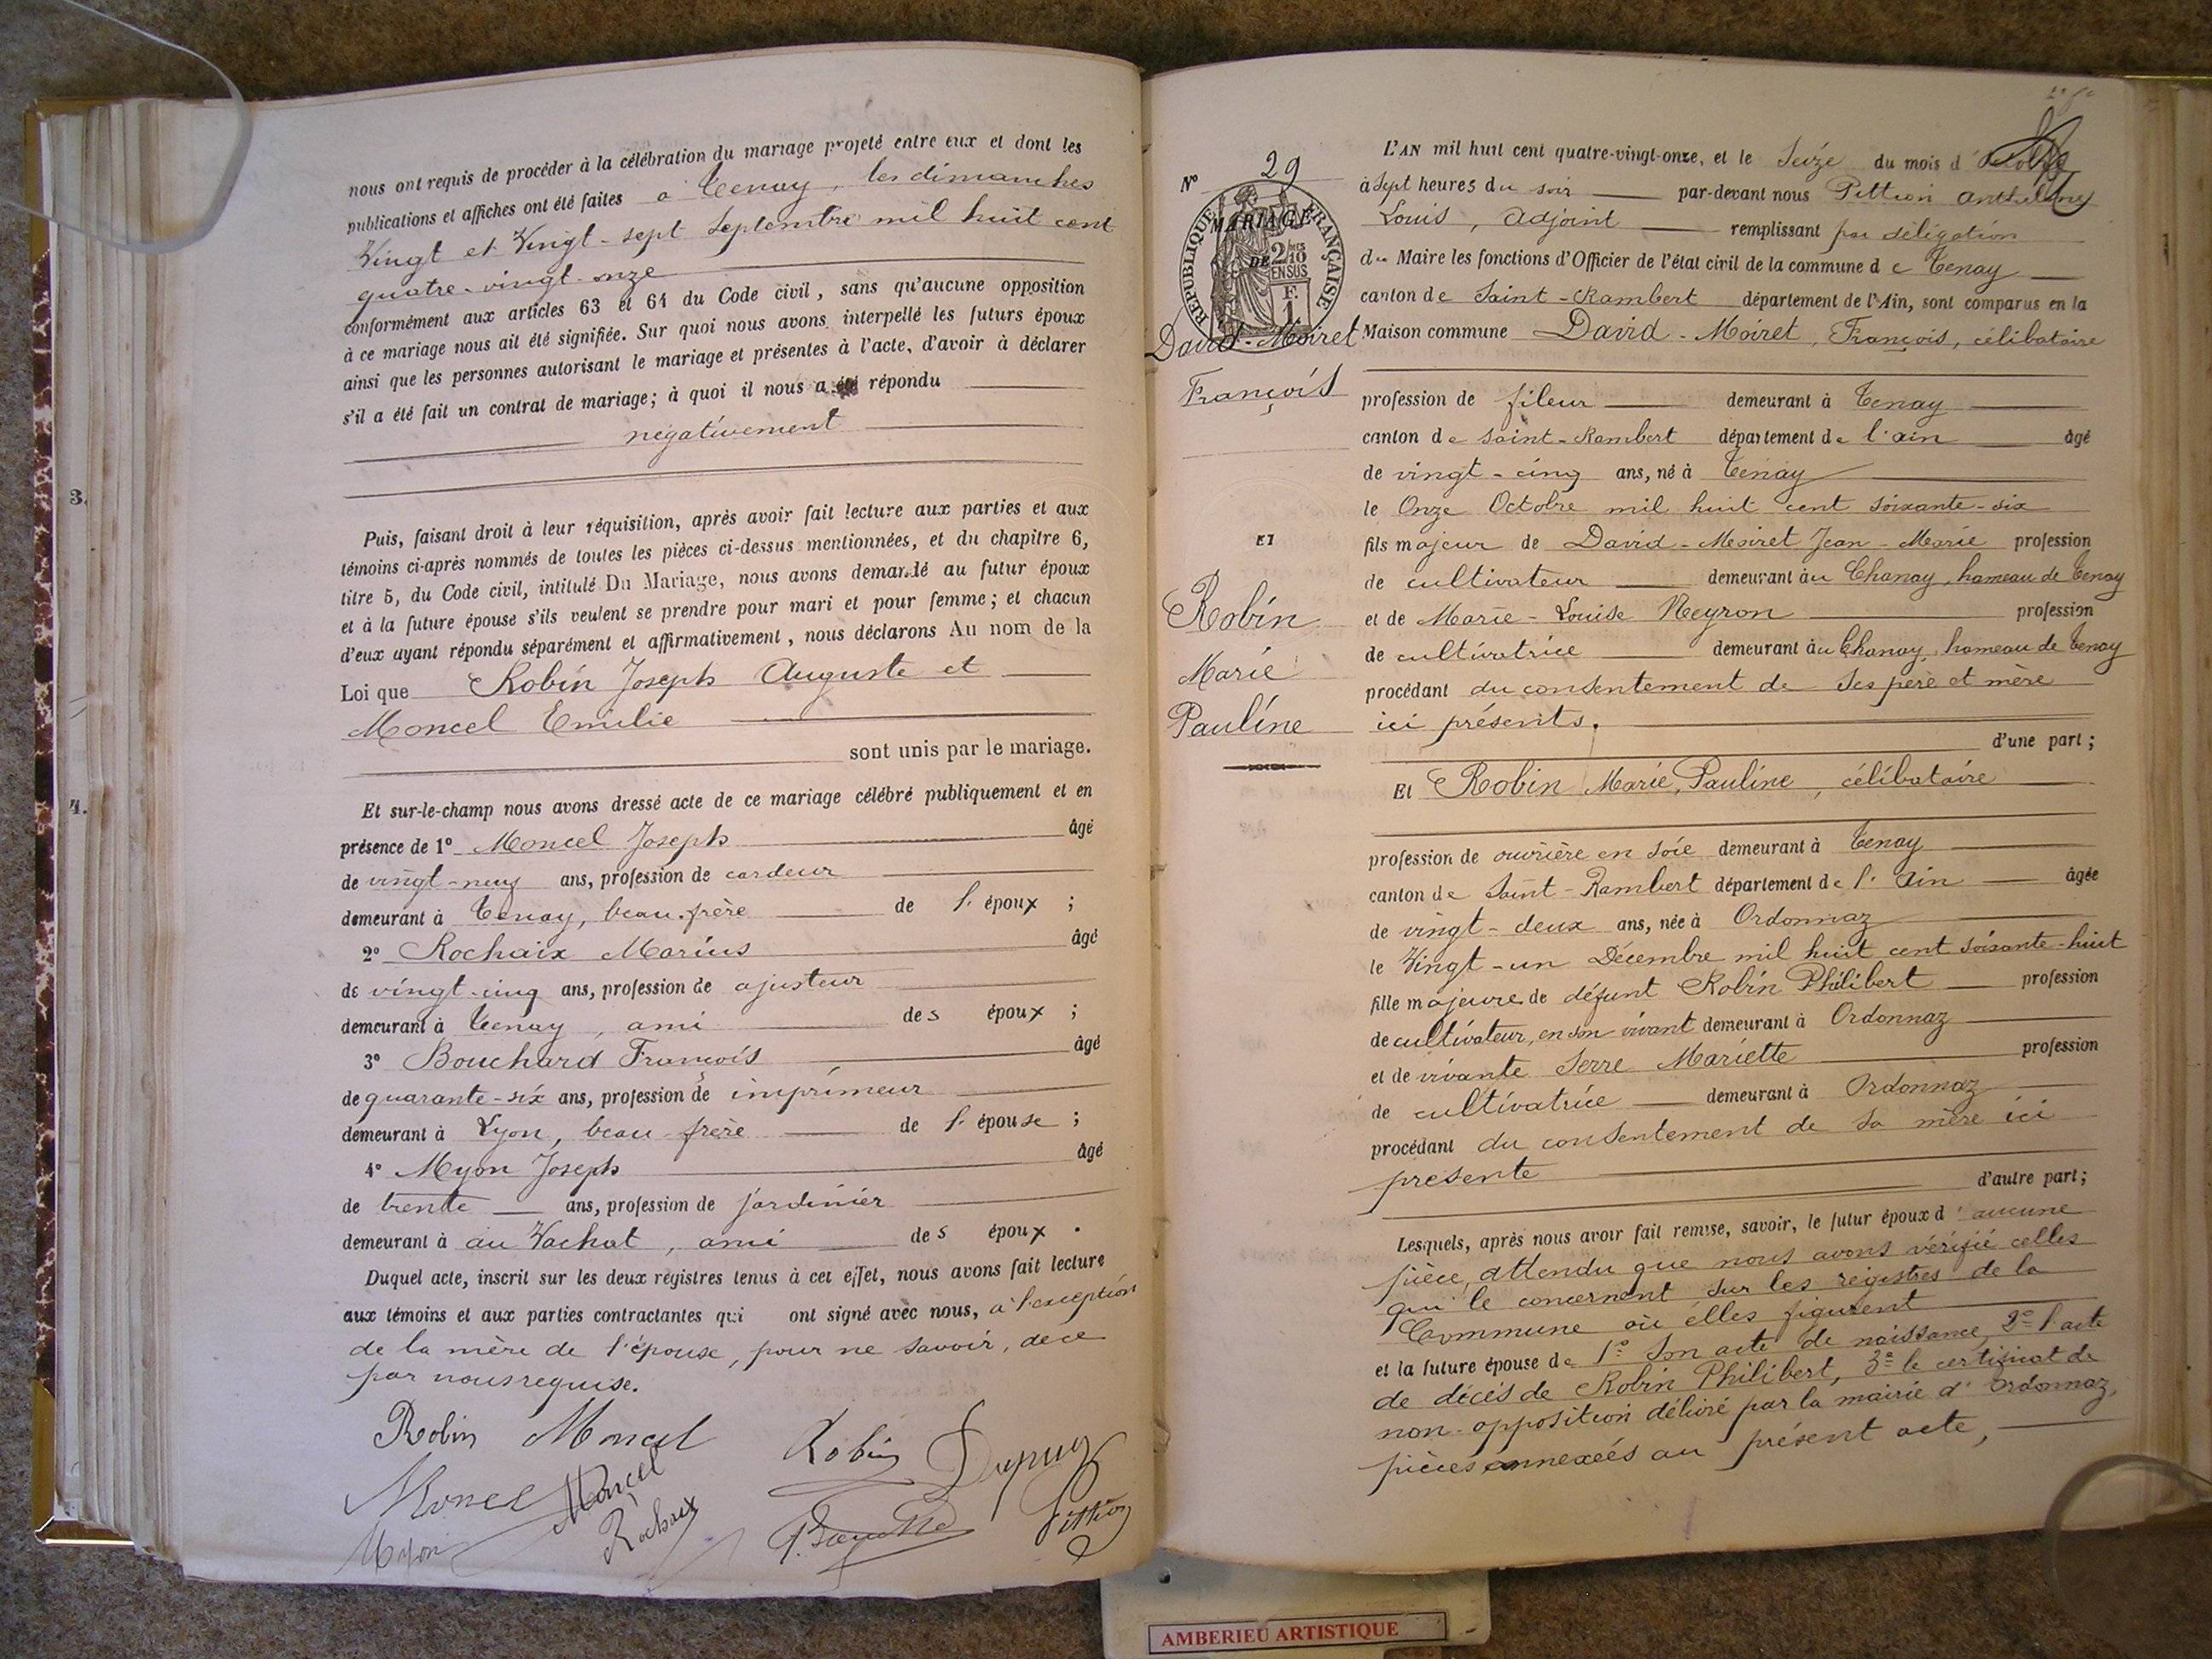 nous ont requis de procéder à la célébration du mariage projeté entre eux et dont les
publications et affiches ont été faites à Tenay, les dimanches
Vingt et Vingt-sept Septembre mil huit cent
quatre-vingt-onze
conformément aux articles 63 et 64 du Code civil, sans qu'aucune opposition
à ce mariage nous ait été signifiée. Sur quoi nous avons interpellé les futurs époux
ainsi que les personnes autorisant le mariage et présentes à l'acte, d'avoir à déclarer
s'il a été fait un contrat de mariage; à quoi il nous a été répondu
négativement
Puis, faisant droit à leur réquisition, après avoir fait lecture aux parties et aux
témoins ci-après nommés de toutes les pièces ci-dessus mentionnées, et du chapitre 6,
titre 5, du Code civil, intitulé Du Mariage, nous avons demandé au futur époux
et à la future épouse s'ils veulent se prendre pour mari et pour femme; et chacun
d'eux ayant répondu séparément et affirmativement, nous déclarons Au nom de la
Loi que Robin Joseph Auguste et
Moncel Emilie
sont unis par le mariage.
Et sur-le-champ nous avons dressé acte de ce mariage célébré publiquement et en
présence de 1° Moncel Joseph âgé
de vingt-neuf ans, profession de cardeur
demeurant à Tenay, beau-frère de l'époux;
2° Rochaix Marius âgé
de vingt-cinq ans, profession de ajusteur
demeurant à Tenay, ami des époux;
3° Bouchard François âgé
de quarante-six ans, profession de imprimeur
demeurant à Lyon, beau-frère de l'épouse;
4° Myon Joseph âgé
de trente ans, profession de jardinier
demeurant à au Vachat, ami des époux.
Duquel acte, inscrit sur les deux registres tenus à cet effet, nous avons fait lecture
aux témoins et aux parties contractantes qui ont signé avec nous, à l'exception
de la mère de l'épouse, pour ne savoir, de ce
par nous requise.
Robin Moncel Robin Dupuy
Moncel Moncel
Myon Rochaix Pittion
N° 29
RÉPUBLIQUE FRANÇAISE
MARIAGE
2/10
DE
EN SUS
F.
1
David-Moiret
François
ET
Robin
Marie
Pauline
L'AN mil huit cent quatre-vingt-onze, et le Seize du mois d'Octobre
à Sept heures du soir par-devant nous Pittion Anthelme
Louis, adjoint remplissant par délégation
du Maire les fonctions d'Officier de l'état civil de la commune de Tenay
canton de Saint-Rambert département de l'Ain, sont comparus en la
Maison commune David-Moiret, François, célibataire
profession de fileur demeurant à Tenay
canton de Saint-Rambert département de l'ain âgé
de vingt-cinq ans, né à Tenay
le Onze Octobre mil huit cent soixante-six
fils majeur de David-Moiret Jean-Marie profession
de cultivateur demeurant àu Chanay, hameau de Tenay
et de Marie-Louise Neyron profession
de cultivatrice demeurant àu Chanay, hameau de Tenay
procédant du consentement de ses père et mère
ici présents.
d'une part;
Et Robin Marie, Pauline, célibataire
profession de ouvrière en soie demeurant à Tenay
canton de Saint-Rambert département de l'Ain âgée
de vingt-deux ans, née à Ordonnaz
le Vingt-un Décembre mil huit cent soixante-huit
fille majeure de défunt Robin Philibert profession
de cultivateur, en son vivant demeurant à Ordonnaz
et de vivante Serre Mariette profession
de cultivatrice demeurant à Ordonnaz
procédant du consentement de sa mère ici
présente
d'autre part;
Lesquels, après nous avoir fait remise, savoir, le futur époux d'aucune
pièce, attendu que nous avons vérifié celles
qui le concernent sur les registres de la
Commune où elles figurent
et la future épouse de 1° Son acte de naissance, 2° l'acte
de décès de Robin Philibert, 3° le certificat de
non-opposition délivré par la mairie d'Ordonnaz,
pièces annexées au présent acte,
AMBERIEU ARTISTIQUE